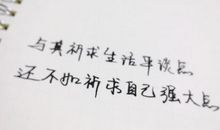 与其祈求生活平淡点
还不如祈求自己强大点